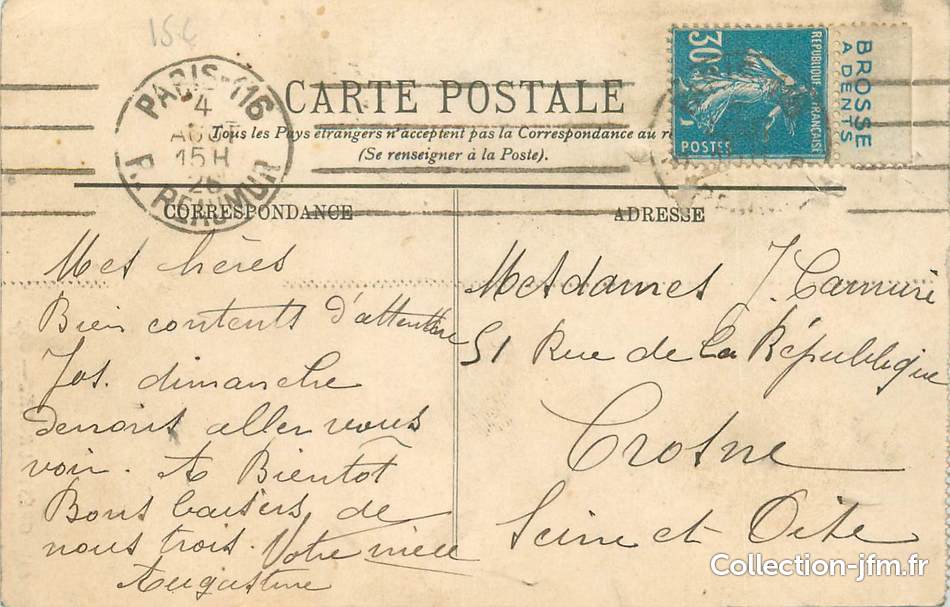 15 €
PARIS-116
4
AOUT
15 H
25
R. REAUMUR
CARTE POSTALE
Tous les Pays étrangers n'acceptent pas la Correspondance au
(Se renseigner à la Poste).
30
REPUBLIQUE FRANÇAISE
POSTES
BROSSE
A DENTS
CORRESPONDANCE
Mes
Bien contents d'attendre
Jos. dimanche
devons aller vous
voir. A Bientôt
Bons baisers de
nous trois. Votre nièce
Augustine
ADRESSE
Mesdames J.
51 Rue de La République
Crosne
Seine et Oise
Collection-jfm.fr